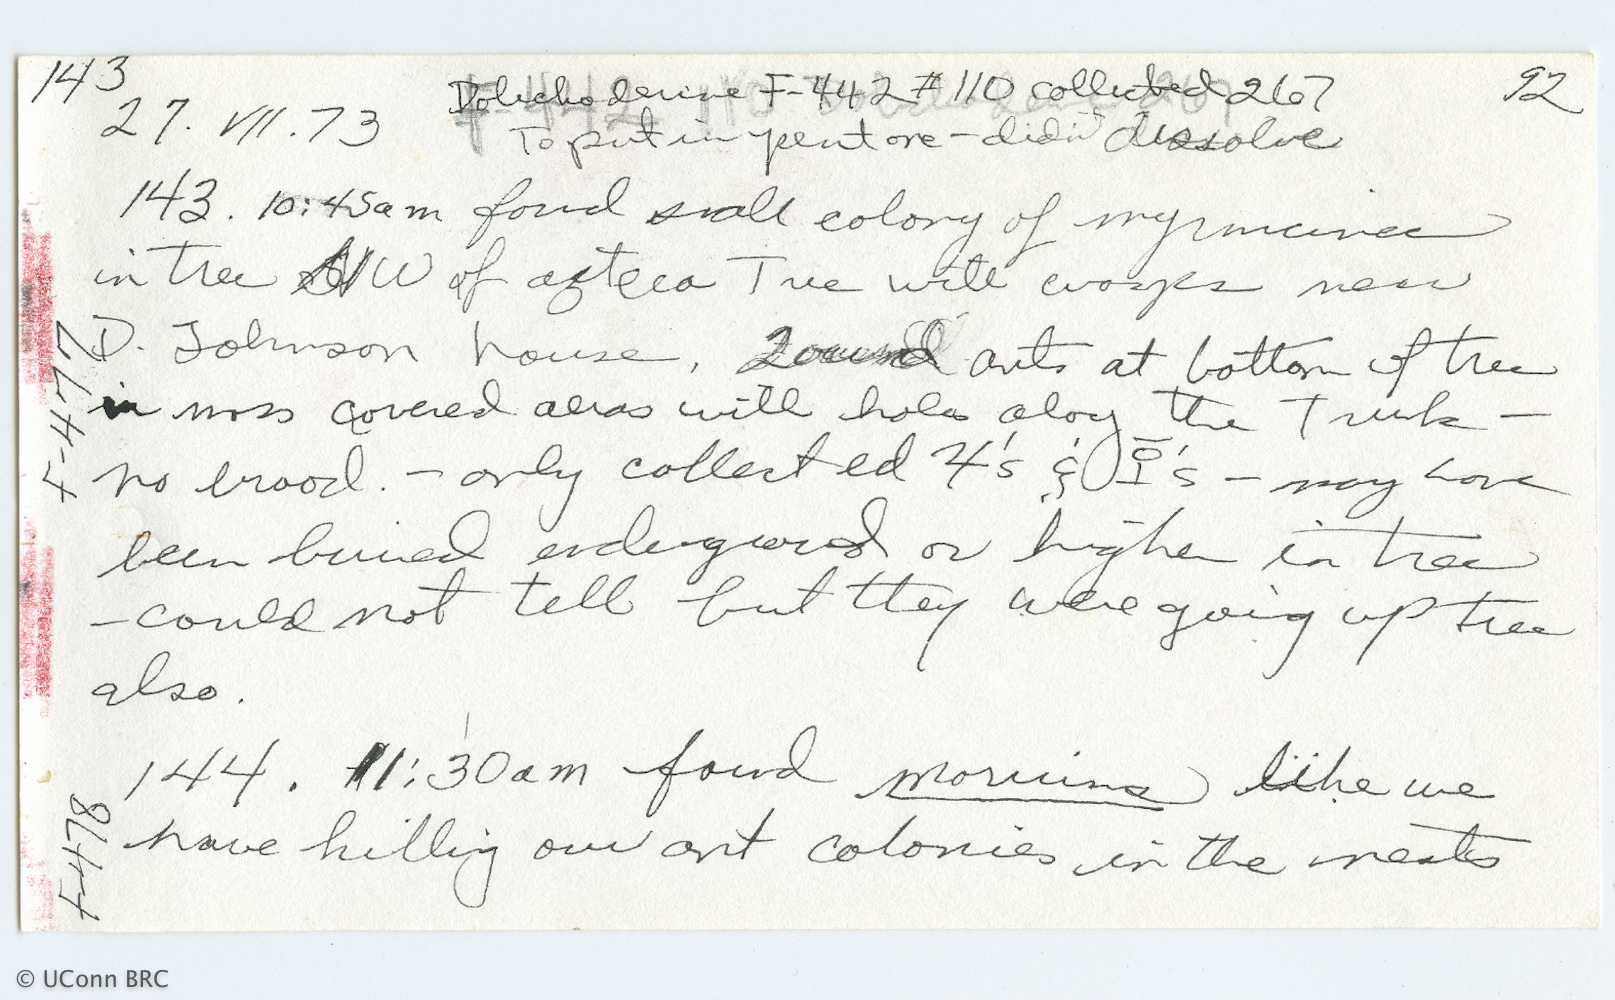 143
Dolichoderine F-442 #110 collected 267
92
27. VII. 73
To put in - didn't dissolve
143. 10:45am found small colony of myrmicinae
in tree NW of azteca Tree with wasps near
D. Johnson house, found ants at bottom of tree
in moss covered areas with holes along the Trunk -
no brood. - only collected & 's - may have
been buried underground or higher in tree
- could not tell but they were going up tree
also.
144. 11:30am found monomina like we
have killing our ant colonies in the nests
F-477
F-478
© UConn BRC